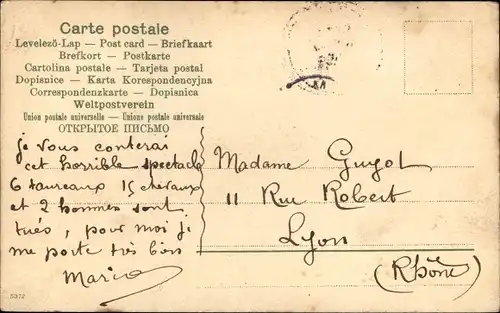 Carte postale
Levelezö-Lap — Post card — Briefkaart
Brefkort — Postkarte
Cartolina postale — Tarjeta postal
Dopisnice — Karta Korespondencyjna
Correspondenzkarte — Dopisnica
Weltpostverein
Union postale universelle — Unione postale universale
ОТКРЫТОЕ ПИСЬМО
je vous conterai
cet horrible spectacle
6 taureaux 15 chevaux
et 2 hommes sont
tués, pour moi je
me porte très bien
Maria
Madame Guyot
11 Rue Robert
Lyon
(Rhône)